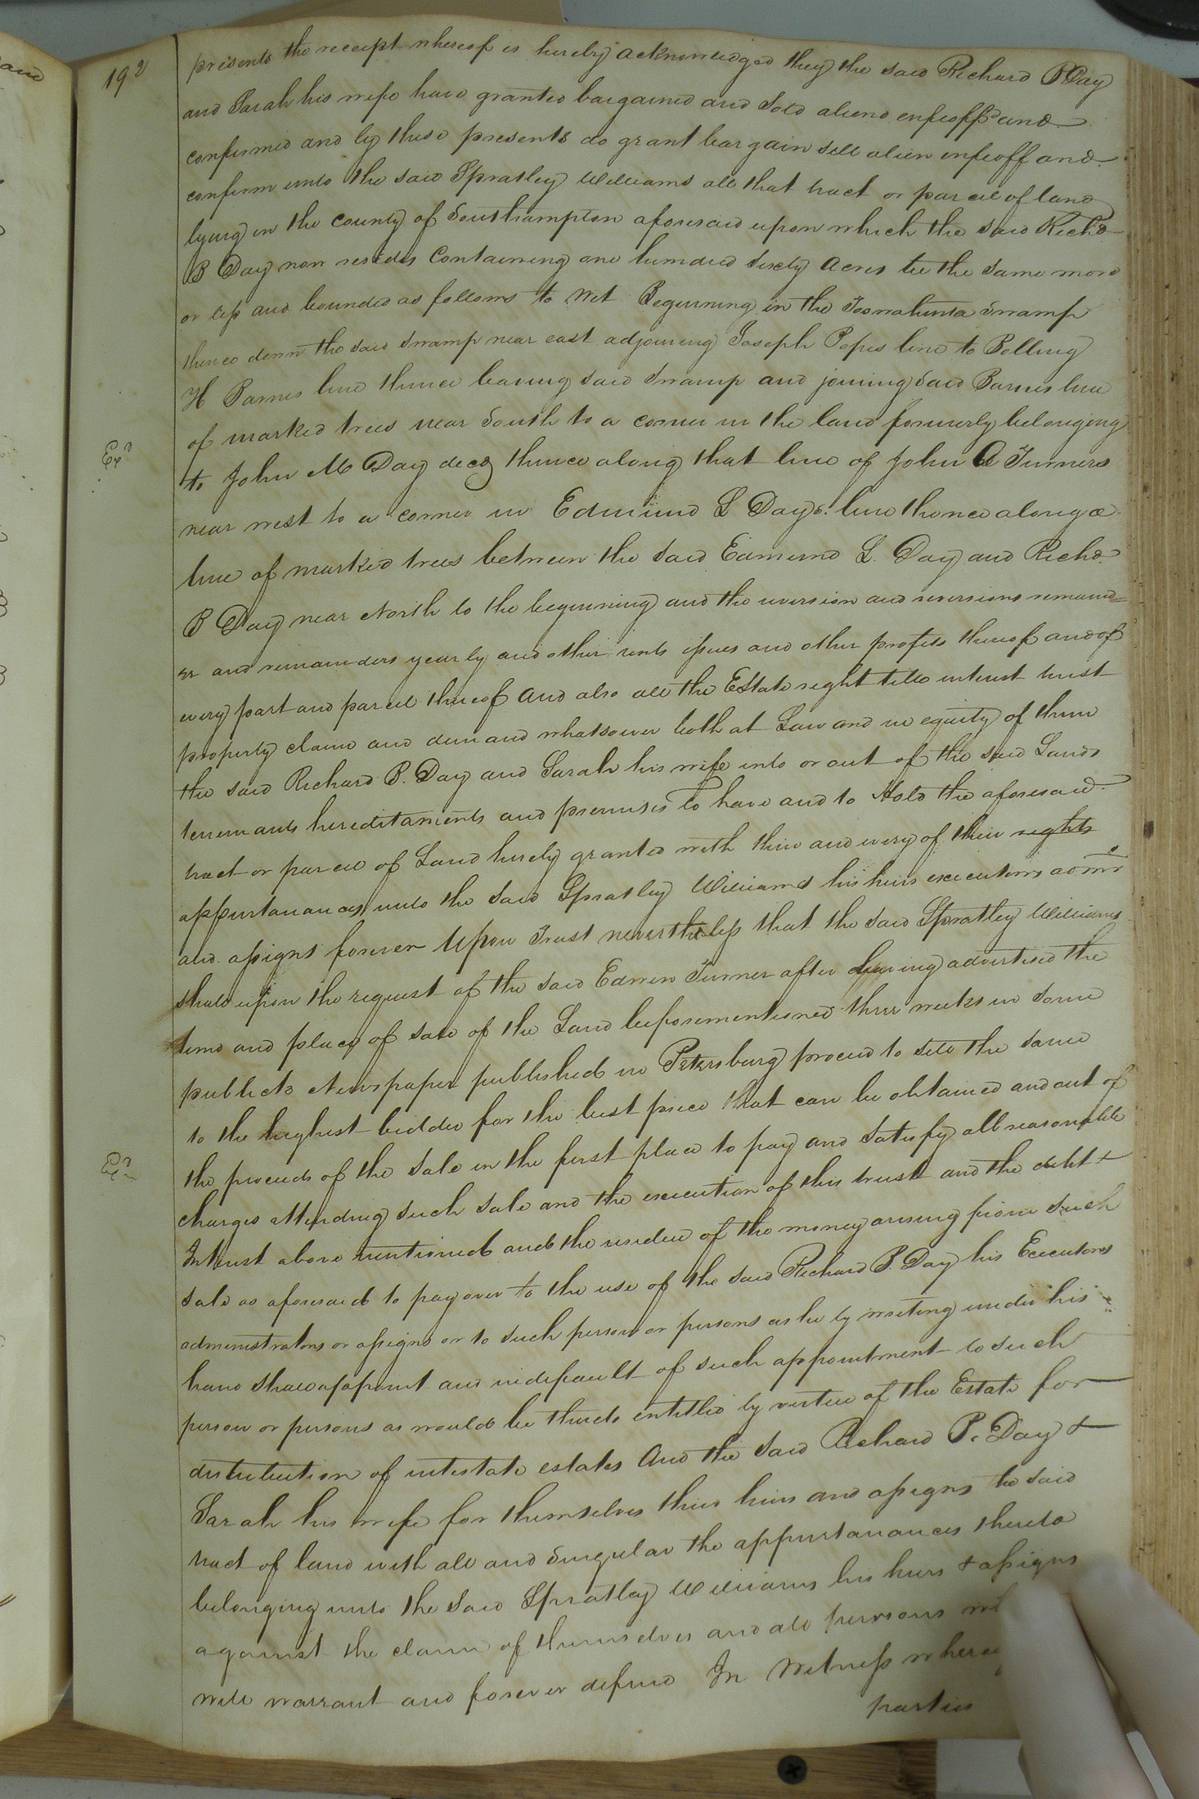 192
presents the receipt whereof is hereby acknowledged they the said Richard P Day
and Sarah his wife have granted bargained and sold aliend enfeoffd and
confirmed and by these presents do grant bargain sell alien enfeoff and
confirm unto the said Spratley Williams all that tract or parcel of land
lying in the county of Southampton aforesaid upon which the said Richd
P Day now resides Containing one hundred sixty Acres be the same more
or less and bounded as follows to wit Beginning in the Swamp
thence down the said Swamp near east adjoining Joseph Popes line to Bolling
H Barnes line thence leaving said Swamp and joining said Barnes line
of marked trees near South to a corner in the land formerly belonging
to John M Day decd thence along that line of John A Turners
near west to a corner in Edmund L Days line thence along a
line of marked trees between the said Edmund L. Day and Richd
P Day near North to the beginning and the reversion and reversions remaind=
er and remainders yearly and other rents issues and other profits thereof and of
every part and parcel thereof And also all the Estate right title interest trust
property claim and demand whatsoever both at Law and in equity of them
the said Richard P. Day and Sarah his wife into or out of the said Lands
tenements hereditaments and premises To have and to Hold the aforesaid
tract or parcel of Land hereby granted with their and every of their rights
appurtanances unto the said Spratley Williams his heirs executors admrs
and assigns forever Upon Trust nevertheless that the said Spratley Williams
shall upon the request of the said Edwin Turner after having advertised the
time and place of sale of the Land beforementioned three weeks in some
public Newspaper published in Petersburg proceed to sell the same
to the highest bidder for the best price that can be obtained and out of
the proceeds of the sale in the first place to pay and satisfy all reasonable
charges attending such sale and the execution of this trust and the debt &
Interest above mentioned and the residue of the money arising from such
sale as aforesaid to pay over to the use of the said Richard P. Day his Executors
administrators or assigns or to such person or persons as he by writing under his
hand shall appoint and in default of such appointment to such
person or persons as would be thereto entitled by virtue of the Estate for
distribution of intestate estates And the said Richard P. Day &
Sarah his wife for themselves their heirs and assigns the said
tract of land with all and singular the appurtanances thereto
belonging unto the said Spratley Williams his heirs & assigns
against the claim of themselves and all persons
will warrant and forever defend In Witness
parties